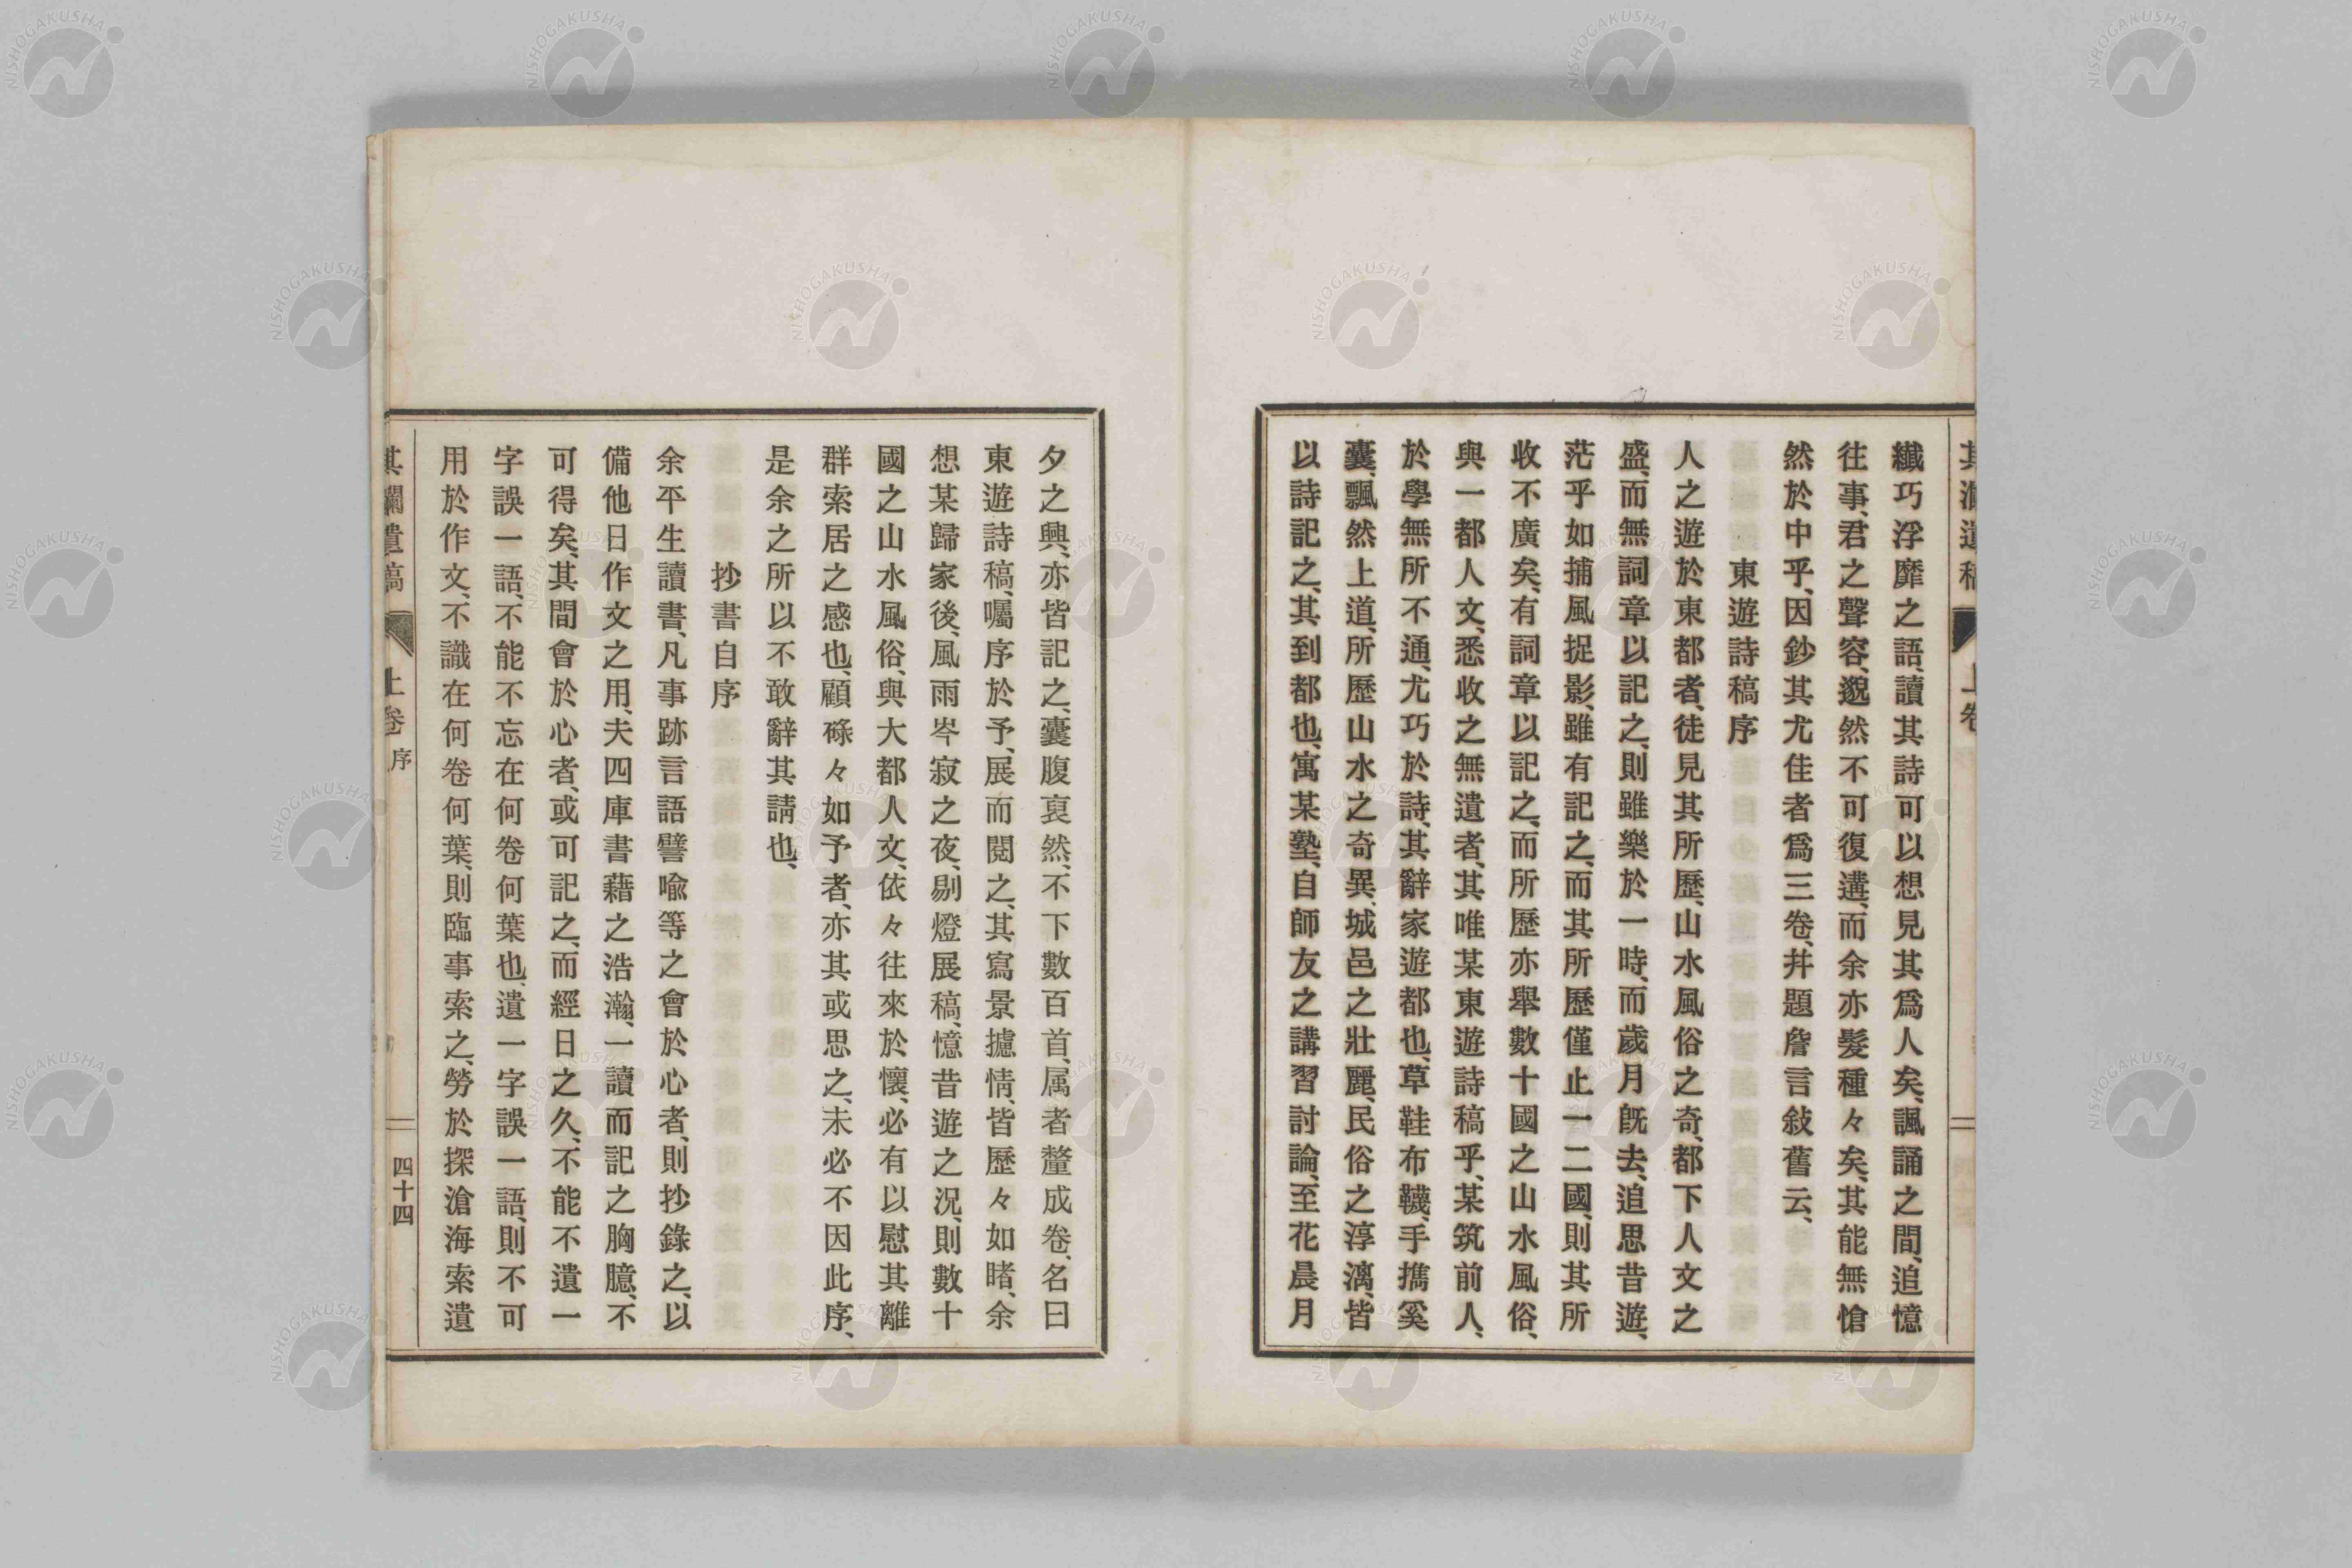 纖巧浮靡之語、讀其詩可以想見其爲人矣、諷誦之間、追憶
往事、君之聲容、邈然不可復遘、而余亦髮種々矣、其能無愴
然於中乎、因鈔其尤佳者爲三卷、幷題詹言敍舊云、
東遊詩稿序
人之遊於東都者、徒見其所歷、山水風俗之奇、都下人文之
盛、而無詞章以記之、則雖樂於一時、而歲月旣去、追思昔遊、
茫乎如捕風捉影、雖有記之、而其所歷僅止一二國、則其所
收不廣矣、有詞章以記之、而所歷亦舉數十國之山水風俗、
與一都人文、悉收之無遺者、其唯某東遊詩稿乎、某筑前人、
於學無所不通、尤巧於詩、其辭家遊都也、草鞋布韈、手擕奚
囊、飄然上道、所歷山水之奇異、城邑之壯麗、民俗之淳漓、皆
以詩記之、其到都也、寓某塾、自師友之講習討論、至花晨月
夕之興、亦皆記之、囊腹裒然、不下數百首、属者釐成卷、名曰
東遊詩稿、囑序於予、展而閱之、其寫景攄情、皆歷々如睹、余
想某歸家後、風雨岑寂之夜、剔燈展稿、憶昔遊之況、則數十
國之山水風俗、與大都人文、依々往來於懷、必有以慰其離
群索居之感也、顧碌々如予者、亦其或思之、未必不因此序、
是余之所以不敢辭其請也、
抄書自序
余平生讀書、凡事跡言語譬喩等之會於心者、則抄錄之、以
備他日作文之用、夫四庫書藉之浩瀚、一讀而記之胸臆、不
可得矣、其間會於心者、或可記之、而經日之久、不能不遺一
字誤一語、不能不忘在何卷何葉也、遺一字誤一語、則不可
用於作文、不識在何卷何葉、則臨事索之、勞於探滄海索遺
其瀾遺稿
上卷 序
四十四
NISHOGAKUSHA